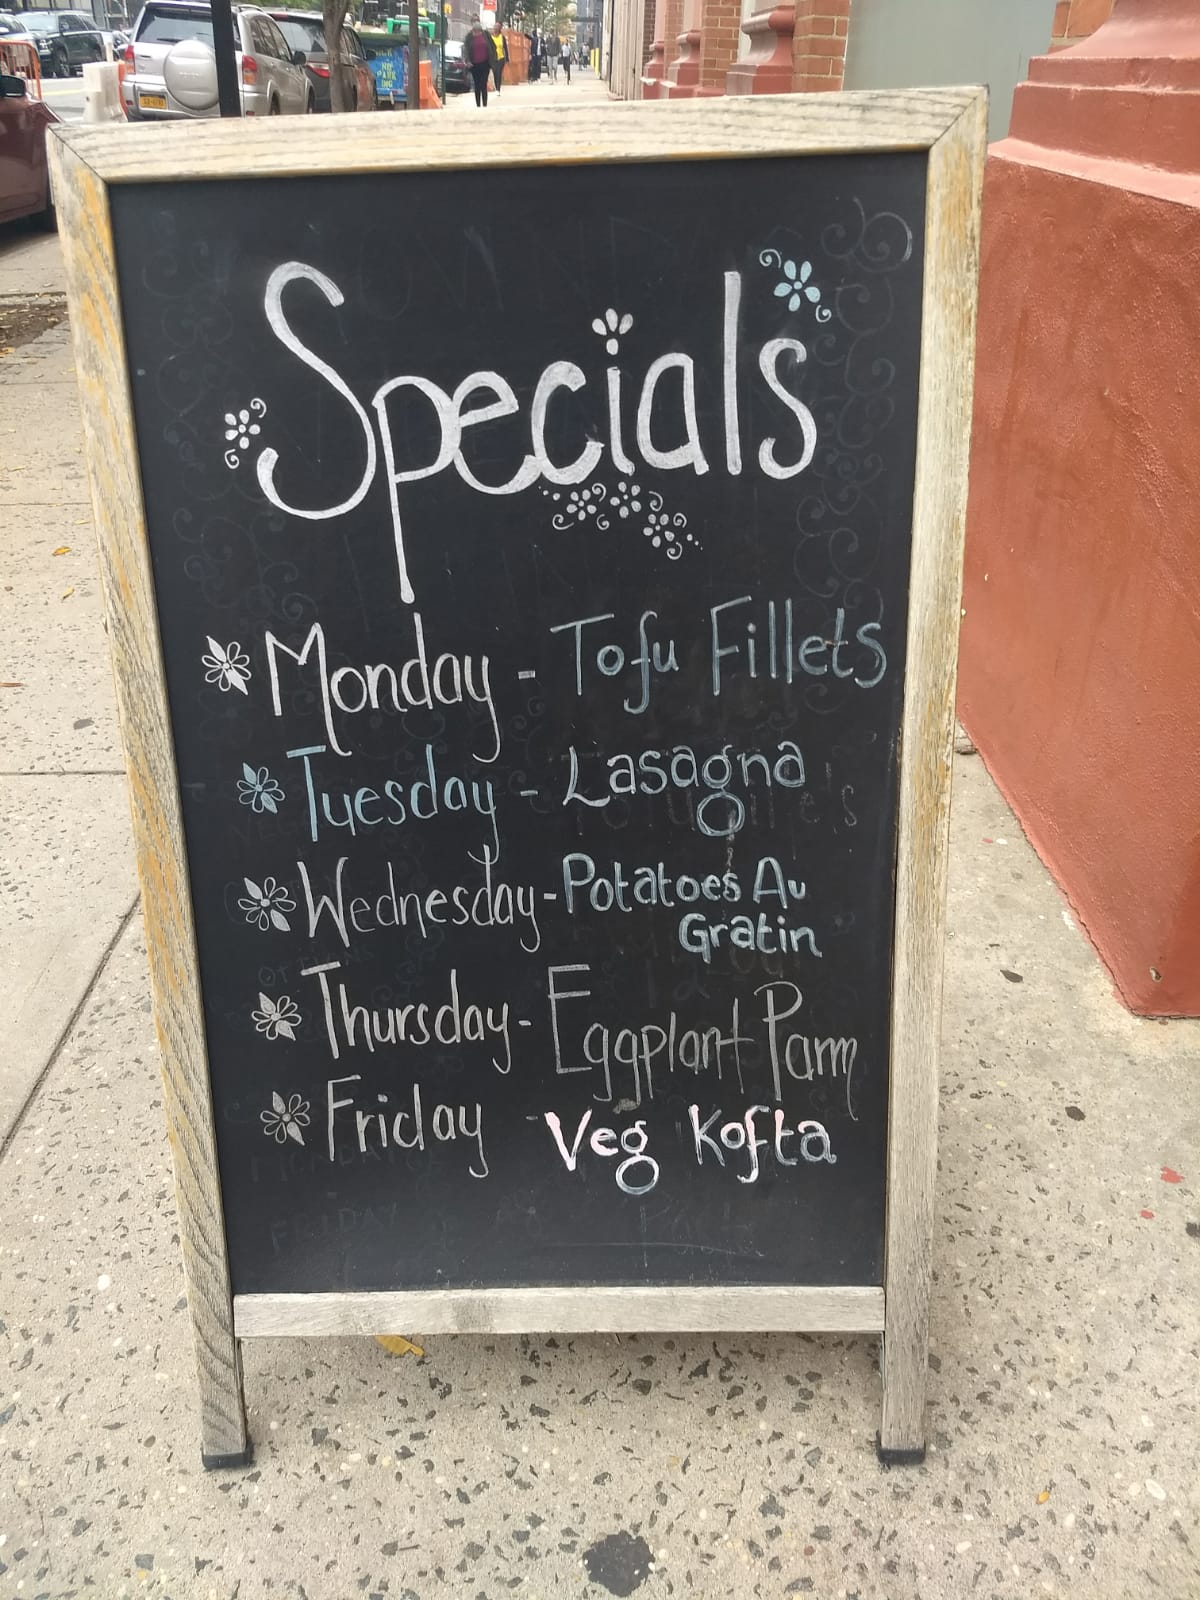 Specials
Monday - Tofu Fillets
Tuesday - Lasagna
Wednesday - Potatoes Au
Gratin
Thursday - Eggplant Parm
Friday - Veg Kofta
NO
PARK
ING